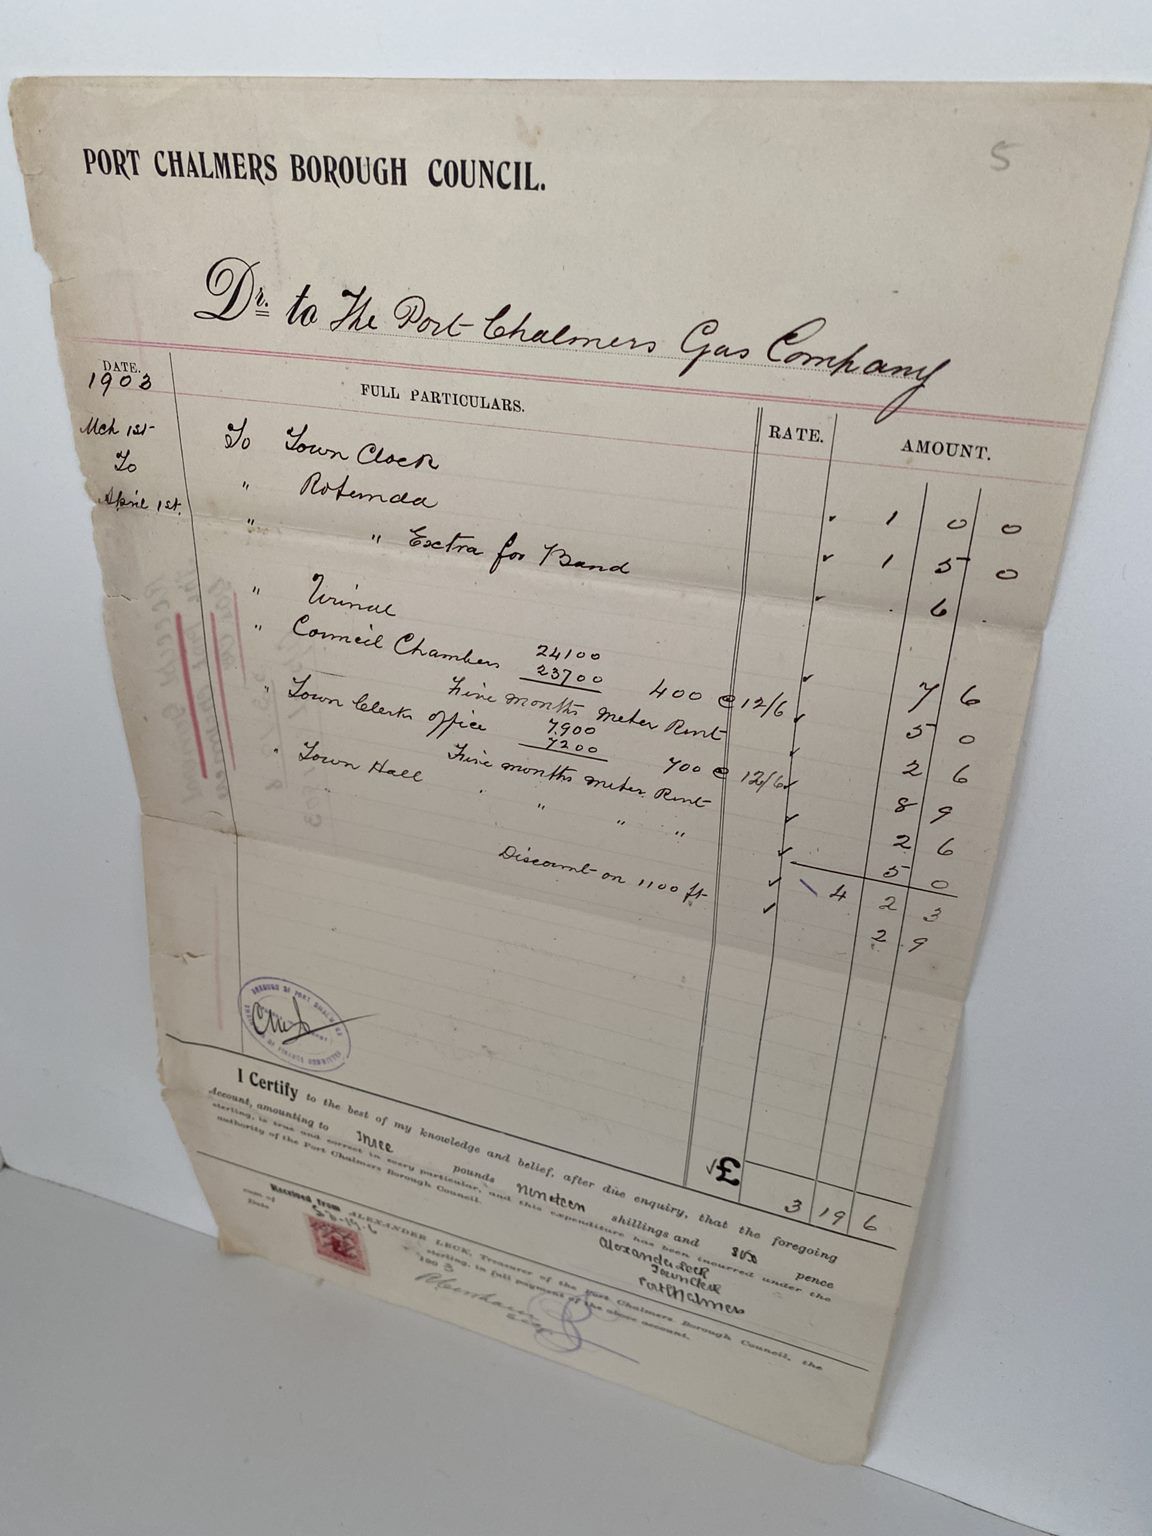 5
PORT CHALMERS BOROUGH COUNCIL.
Dr. to The Port Chalmers Gas Company
DATE. FULL PARTICULARS. RATE. AMOUNT.
1903
Mch 1st To Town Clock 1 0 0
To " Rotunda 1 5 0
April 1st. " " Extra for Band 6
" Urinal 7 6
" Council Chambers 24100
23700 400 @ 12/6 5 0
Five months meter Rent 2 6
" Town Clerks office 7900
7200 700 @ 12/6 8 9
Five months meter Rent 2 6
" Town Hall " " " " 5 0
4 2 3
Discount on 1100 ft 2 9
BOROUGH OF PORT CHALMERS
£ 3 19 6
I Certify to the best of my knowledge and belief, after due enquiry, that the foregoing
Account, amounting to Three pounds Nineteen shillings and six pence
sterling, is true and correct in every particular, and this expenditure has been incurred under the
authority of the Port Chalmers Borough Council.
Alexander Leck
Town Clerk
Port Chalmers
Received from ALEXANDER LECK, Treasurer of the Port Chalmers Borough Council, the
sum of £3-19-6 sterling, in full payment of the above account.
Date 1903